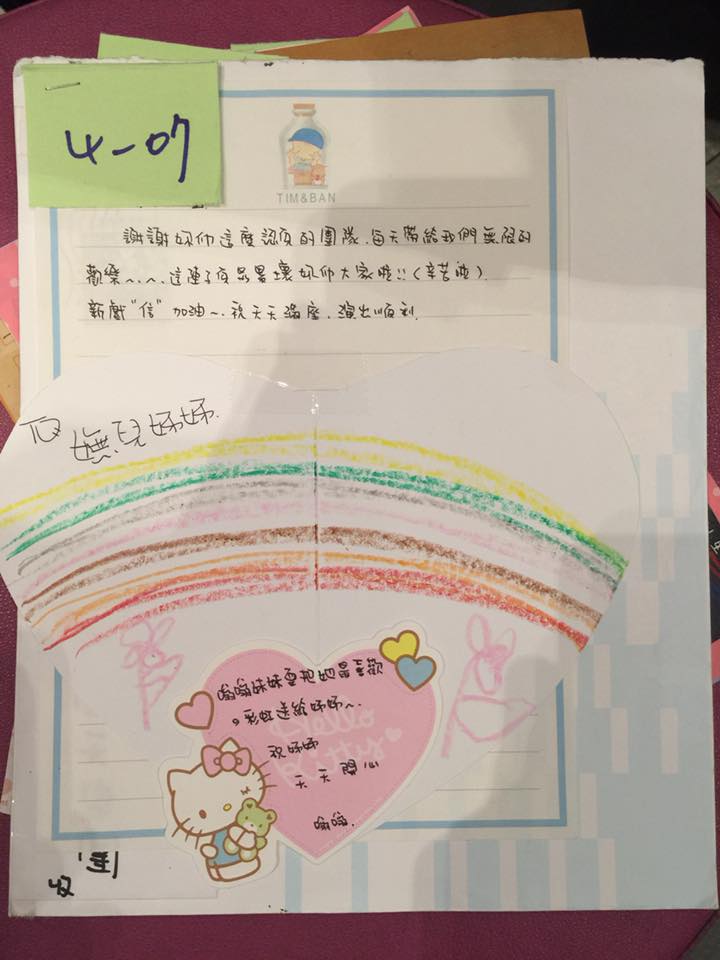 4-07
TIM&BAN
謝謝妳们這麼認真的團隊.每天帶給我們無限的
歡樂~.~.這陣子真是累壞妳们大家啦!!(辛苦啦).
新戲"信"加油~.祝天天滿座.演出順利.
To 嫵兒姊姊.
嗡嗡妹妹要把她最喜歡
の彩虹送給姊姊~.
Hello
Kitty
祝姊姊
天天開心
嗡嗡.
收到